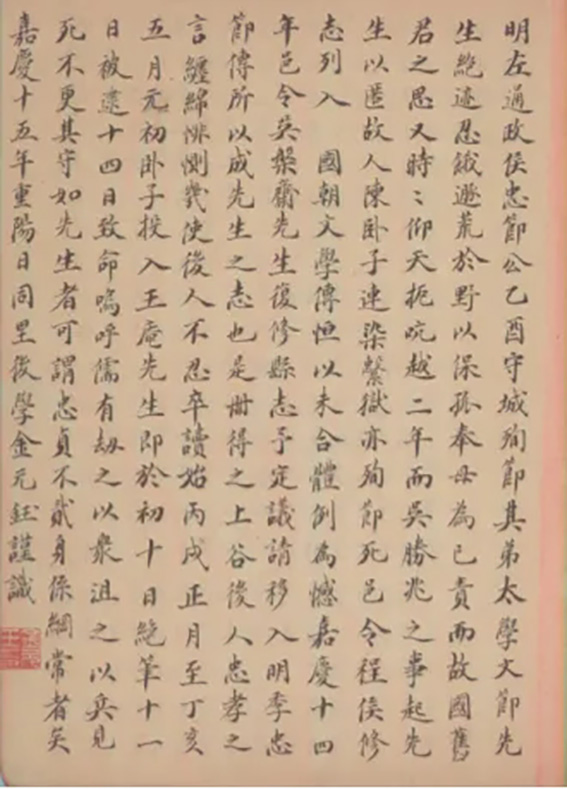 明左通政侯忠節公乙酉守城殉節其弟太學文節先
生絶迹忍餓遯荒於野以保孤奉母為已責而故國舊
君之思又時〻仰天扼吭越二年而吳勝兆之事起先
生以匿故人陳卧子連染繫獄亦殉節死邑令程侯修
志列入　國朝文學傳恒以未合體例為憾嘉慶十四
年邑令吳槃齋先生復修縣志予定議請移入明季忠
節傳所以成先生之志也是冊得之上谷後人忠孝之
言纏綿悱惻幾使後人不忍卒讀始丙戌正月至丁亥
五月元初卧子投入王庵先生即於初十日絶筆十一
日被逮十四日致命嗚呼儒有劫之以衆沮之以兵見
死不更其守如先生者可謂忠貞不貳身係綱常者矣
嘉慶十五年重陽日同里後學金元鈺謹識